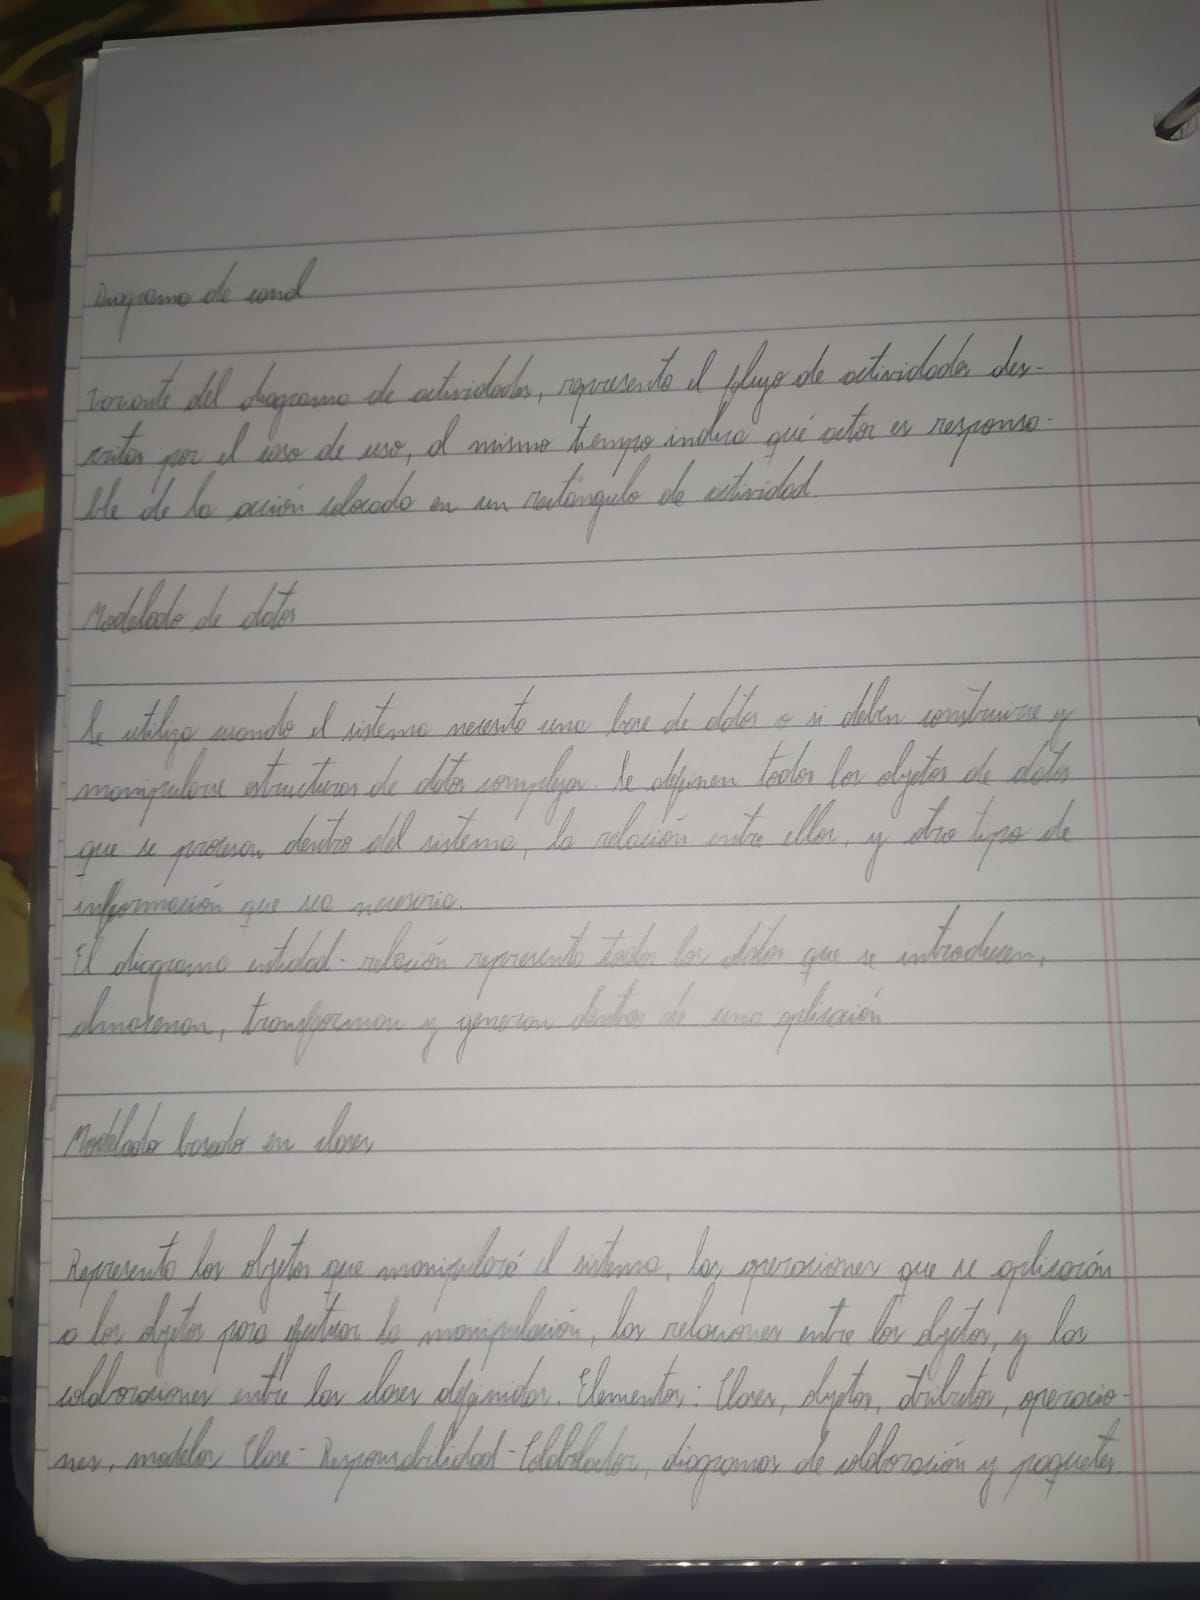 Diagrama de canal
Variante del diagrama de actividades, representa el flujo de actividades des-
critas por el caso de uso, al mismo tiempo indica qué actor es responsa-
ble de la acción colocada en un rectángulo de actividad.
Modelado de datos
Se utiliza cuando el sistema necesita una base de datos o si deben construirse y
manipularse estructuras de datos complejas. Se definen todos los objetos de datos
que se procesan dentro del sistema, la relación entre ellos, y otro tipo de
información que sea necesaria.
El diagrama entidad-relación representa todos los datos que se introducen,
almacenan, transforman y generan dentro de una aplicación
Modelado basado en clases
Representa los objetos que manipulará el sistema, las operaciones que se aplicarán
a los objetos para efectuar la manipulación, las relaciones entre los objetos, y las
colaboraciones entre las clases definidas. Elementos: Clases, objetos, atributos, operacio-
nes, modelos Clase-Responsabilidad-Colabolador, diagramas de colaboración y paquetes.